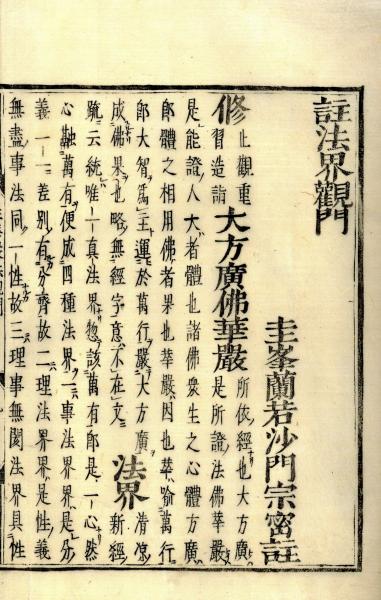 註法界觀門
圭峯蘭若沙門宗密註
修
止觀熏
習造詣
大方廣佛華嚴
所依經也大方廣
是所證法佛華嚴
是能證人大者體也諸佛衆生之心體方廣
即體之相用佛者果也華嚴因也華喻萬行
即大智爲主運於萬行嚴大方廣
成佛果也略無經字意不在文
法界
清凉
新經
疏云統唯一真法界惣該萬有即是一心然
心融萬有便成四種法界一事法界界是分
義一一差別有分齊故二理法界界是性義
無盡事法同一性故三理事無閡法界具性